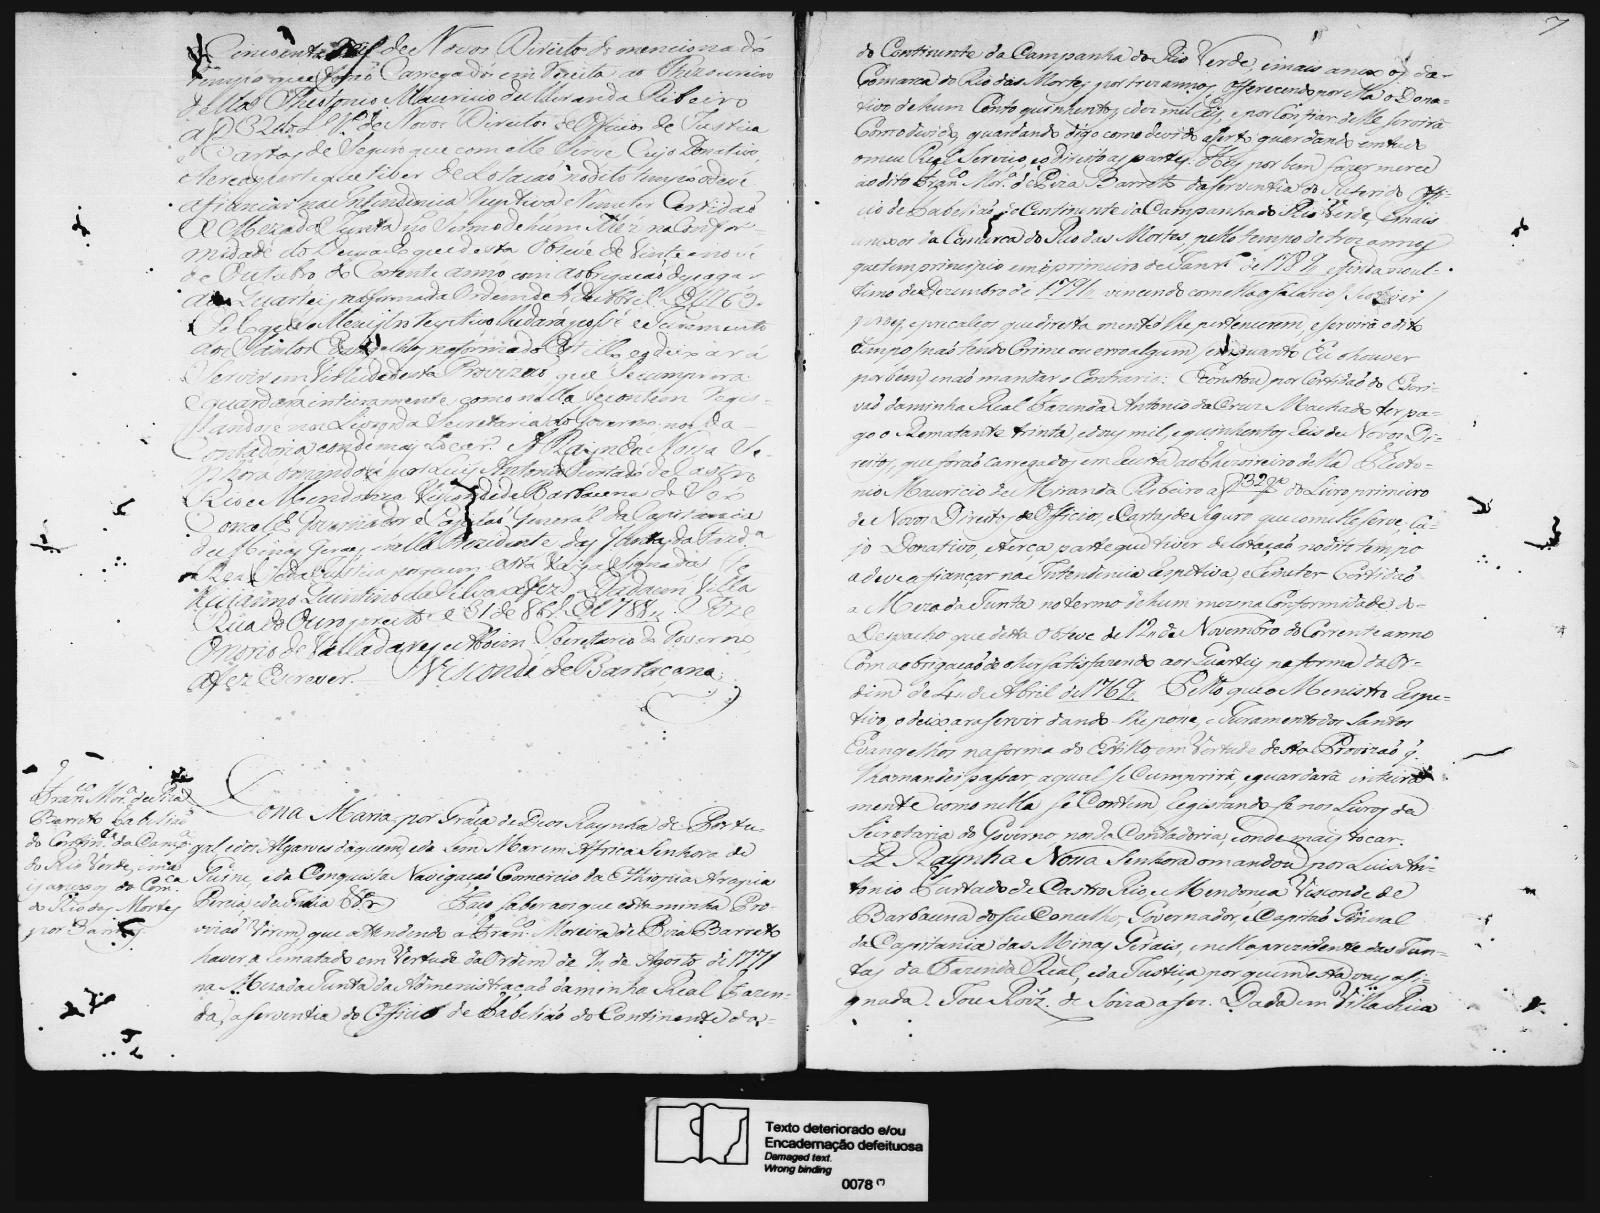 Cincoenta Reis de Novos Direitos do mencionado
tempo que forão Carregados em Receita ao Thezoureiro
dellas Theotonio Mauricio de Miranda Ribeiro
a f 32 do L.º 1.º de Novos Direitos de Officios de Justiça
e Cartas de Seguro que com elle Serve, Cujo Donativo,
e terça parte que tiver de Lotação no dito tempo deve
afiançar na Intendencia Respectiva e Remeter Certidão
a Meza da Junta no termo de hum Mez na Confor-
midade do Despaxo que desta Obteve de vinte e nove
de Outubro do Corrente anno com a obrigação de pagar
aos Quarteis na forma da Ordem de 4 de Abril de 1769.
Pelo que o Menistro Respectivo lhe dará posse e Juramento
dos Santos Evangelhos na forma do Estillo, e o deixará
Servir em Virtude desta Provizão que Se cumprirá
e guardará inteiramente, como nella Se contem Regis-
tandose nos Livros da Secretaria do Governo, nos da
Contadoria e onde mais tocar. A Raynha Nossa Se-
nhora o mandou por Luis Antonio Furtado de Castro
Rio e Mendonça Visconde de Barbacena do Seo
Conc.º Governador e Capitão General da Capitania
de Minas Geraes, e nella Prezidente das Juntas da Fazd.ª
Real e da Justiça por quem esta vai asignada
Quintino da Silva a fez. Dada em Villa
Rica do Ouro preto a 31 de 8br.º de 1788 Joze
Onorio de Valladares e Aboim Secretario do Governo,
a fez Escrever. Visconde de Barbacena
Fran.co Mor.ª de Piza
Barreto Tabelião
do Contin.te da Camp.ª
do Rio Verde, e mais
anexos da Com.ca
do Rio das Mortes
por 3 annos
Dona Maria por Graça de Deos Raynha de Portu-
gal e dos Algarves daquem, e da lem Mar em Africa Senhora de
Guine, e da Conquista Navigação Comercio da Ethiopia Arapia
Percia, e da India Etc.ª Faço saber aos que esta minha Pro-
vizão virem, que atendendo a Fran.co Moreira de Piza Barreto
haver a Rematado em Vertude da Ordem de 7, de Agosto de 1771
na Meza da Junta da Admenistração da minha Real Fazen-
da, a serventia do Officio de Tabelião do Continente da-
7
do Continente da Campanha do Rio Verde, e mais anexos da-
Comarca do Rio das Mortes, por tres annos, offerecendo por ella o Dona-
tivo de hum Conto quinhentos, e dois mil Reis, e por Confiar delle servirá
Como devido, guardando digo como devido aserto, guardando em tudo
o meu Real Serviço, e o direito as partes. Hey por bem fazer merce
ao dito Fran.co Mor.ª de Piza Barreto da serventia do Referido Offi-
cio de Tabelião do Continente da Campanha do Rio Verde, e mais
anexos da Comarca do Rio das Mortes, pello tempo de trez annos
que tem principio em o primeiro de Janr.º de 1789, e finda no ul-
timo de Dezembro de 1791, vencendo com elle o salario
e precalços que direta mente lhe pertencerem, e servirá o dito
tempo (não tendo Crime ou erro algum) em quanto Eu o houver
por bem, e não mandar o Contrario. Constou, por Certidão do Escri-
vão da minha Real Fazenda Antonio da Cruz Machado ter pa-
go o Rematante trinta, e dous mil, e quinhentos Reis de Novos Di-
reitos, que forão carregados em Receita ao Thezoireiro della Theoto-
nio Mauricio de Miranda Ribeiro a f 32 do Livro primeiro
de Novos Direitos, de Officios, e Cartas de Seguro que com elle serve, Cu-
jo Donativo, e terça parte que tiver de Lotação no dito tempo
a deve afiançar na Intendencia Respectiva, e Remeter Certidão
a Meza da Junta no termo de hum mez na Conformidade do-
Despacho que della Obteve de 12, de Novembro do Corrente anno
Com a obrigação de o hir satisfazendo aos Quarteis na forma da Or-
dem de 4, de Abril de 1769. Pello que o Menistro Respe-
tivo, o deixara servir dando-lhe posse, e Juramento dos Santos
Evangelhos na forma do Estillo, em Vertude desta Provizão q̃
lhe mandei passar, a qual se Cumprirá, e guardará inteira-
mente como nella se Contem Registando-se nos Livros da
Secretaria do Governo nos da Contadoria, e onde mais tocar.
A Raynha Nossa Senhora o mandou por Luis An-
tonio Furtado de Castro Rio, e Mendonca Visconde de
Barbacena do seu Concelho, Governador, e Capitão General
da Capitania das Minas Gerais, e nella prezidente das Jun-
tas da Fazenda Real, e da Justiça, por quem esta vay asi-
gnada. Joze Roiz. de Soiza a fez. Dada em Villa Rica
Texto deteriorado e/ou
Encadernação defeituosa
Damaged text.
Wrong binding
0078 (*)